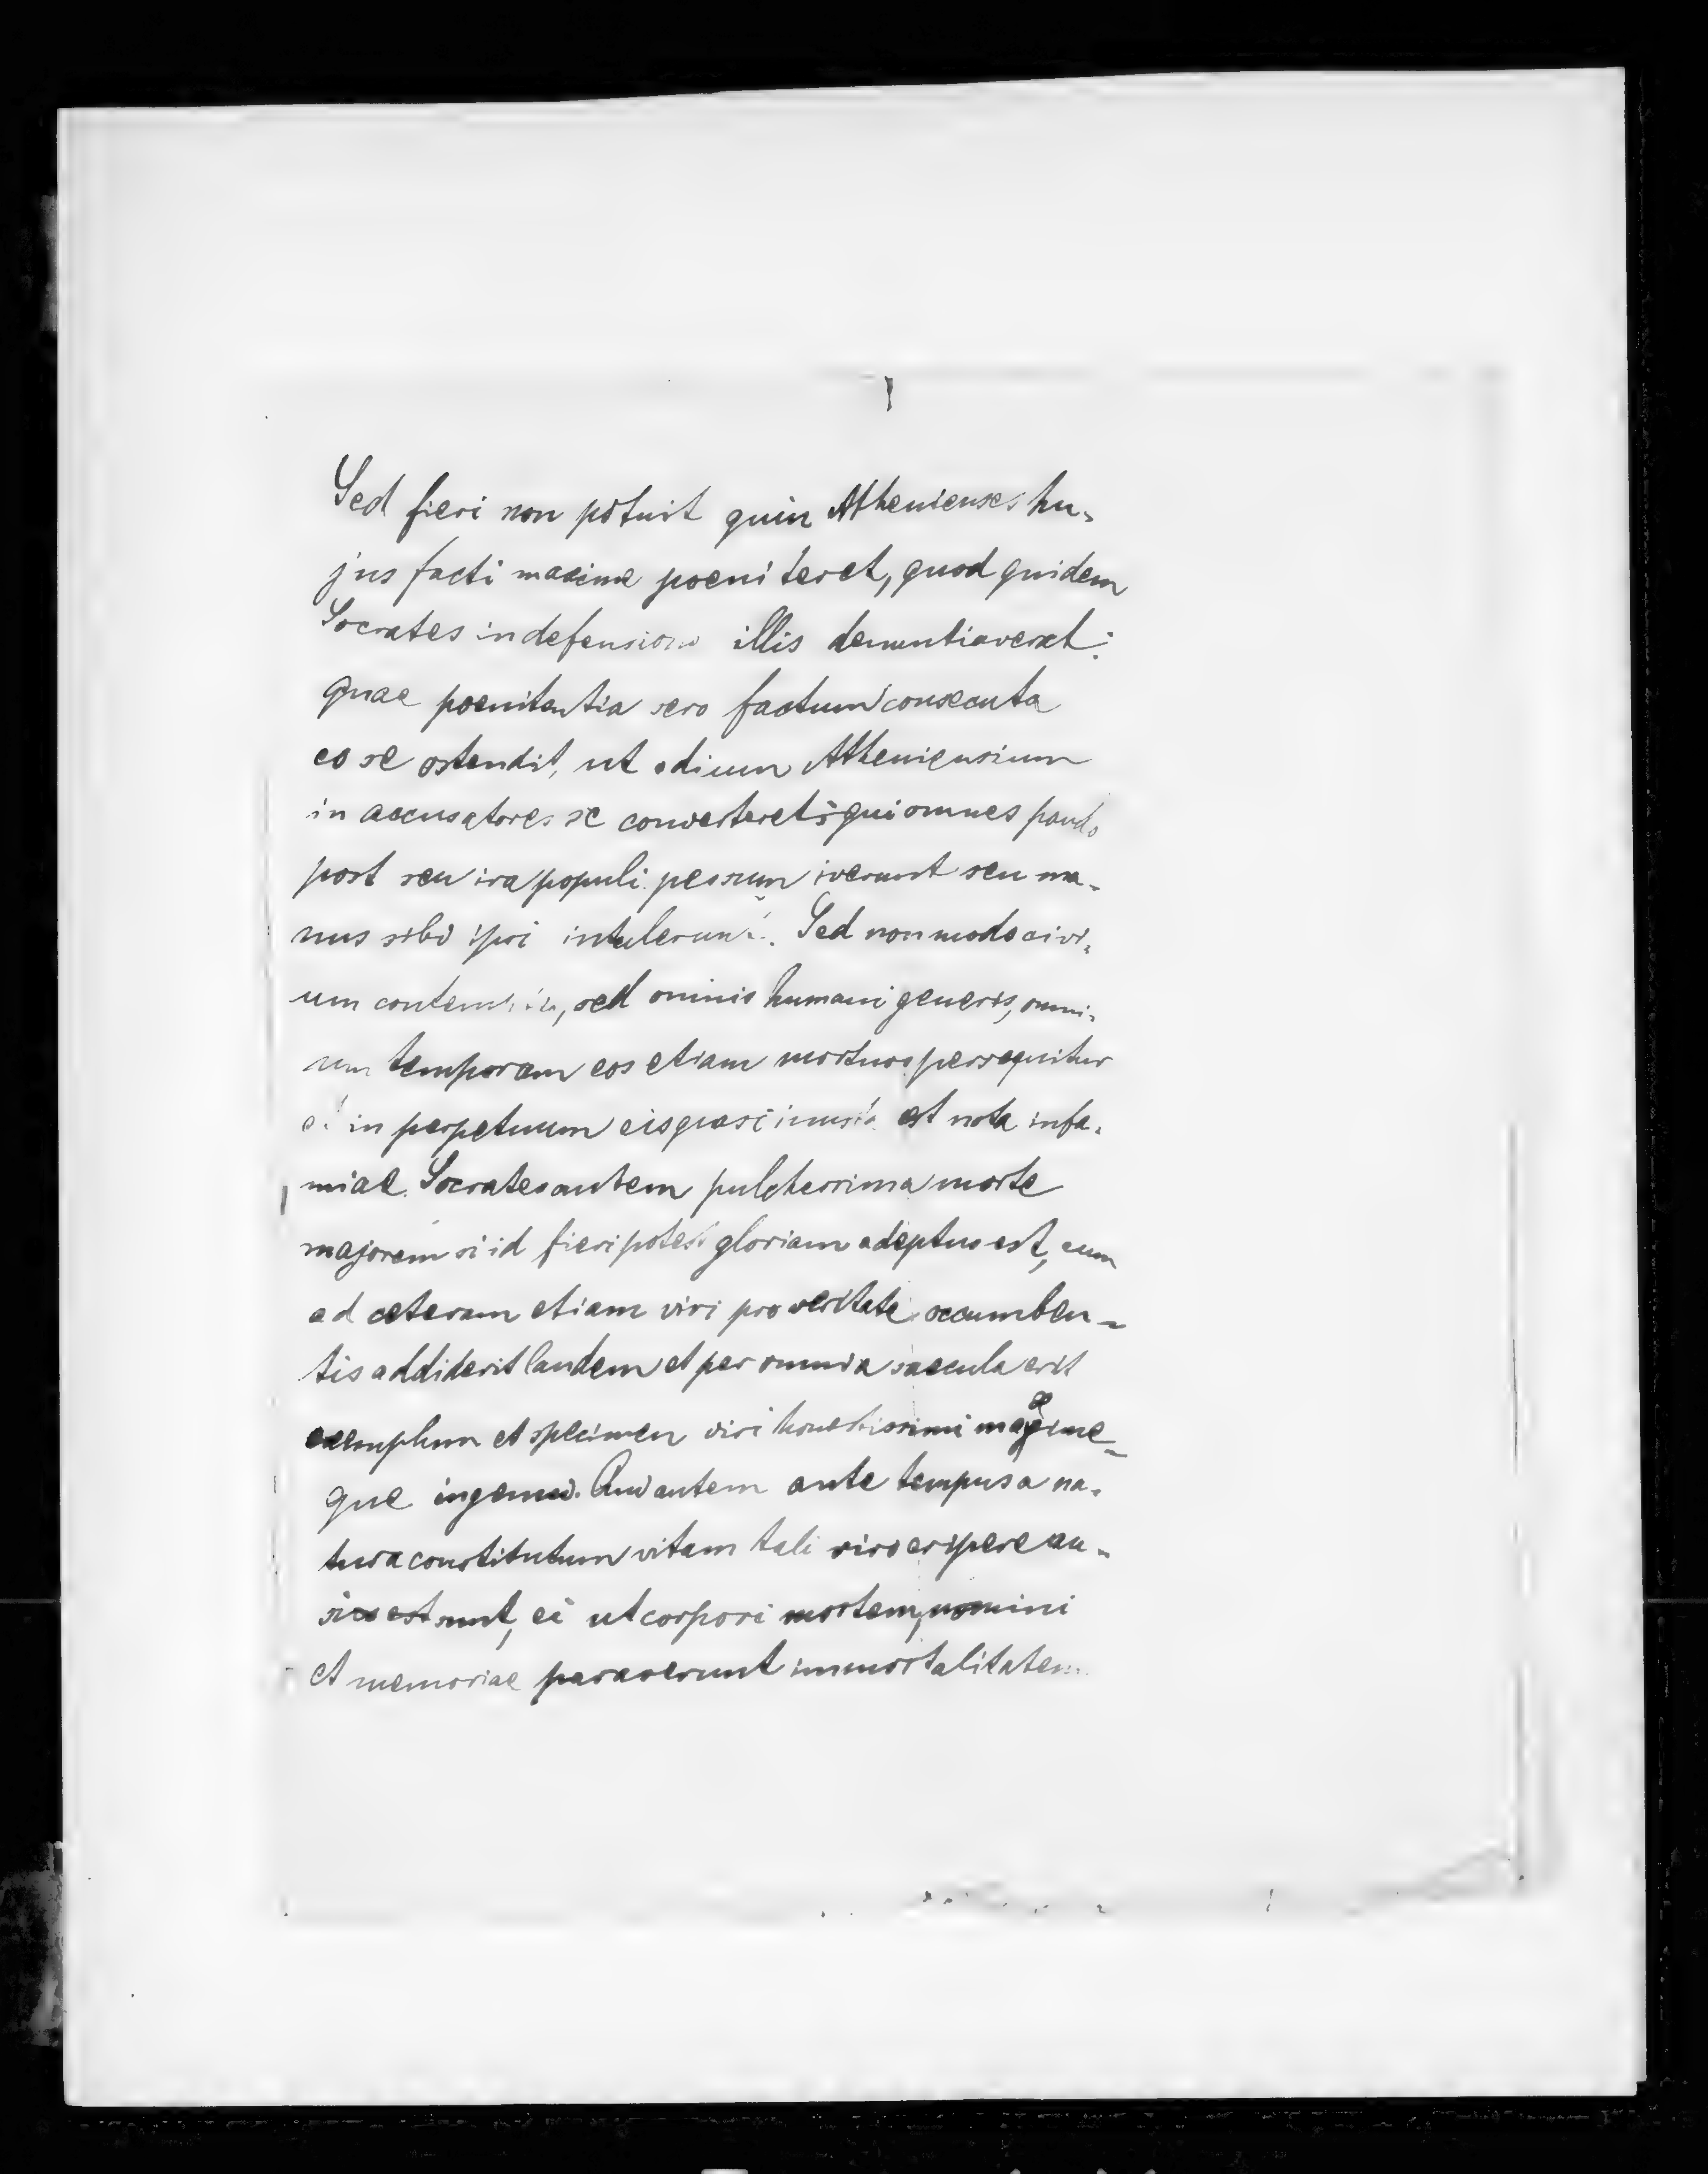 Sed fieri non potuit quin Athenienses hu-
jus facti maxime poeniteret, quod quidem
Socrates in defensione illis denuntiaverat:
quae poenitentia sero factum consecuta
eo se ostendit, ut odium Atheniensium
in accusatores se converteret; qui omnes paulo
post seu ira populi pessum iverunt seu ma-
nus sibi ipsi intulerunt. Sed non modo civi-
um sed omnis humani generis, omni-
um temporum eos etiam mortuos persequitur
et in perpetuum eis quasi inusta est nota infa-
miae. Socrates autem pulcherrima morte
majorem si id fieri potest gloriam adeptus est, cum
ad ceteram etiam viri pro veritate occumben-
tis addiderit laudem et per omnia saecula erit
exemplum et specimen viri honestissimi maxime-
que ingenui. Qui autem ante tempus a na-
tura constitutum vitam tali viro eripere au-
si sunt, ei ut corpori mortem, nomini
et memoriae paraverunt immortalitatem